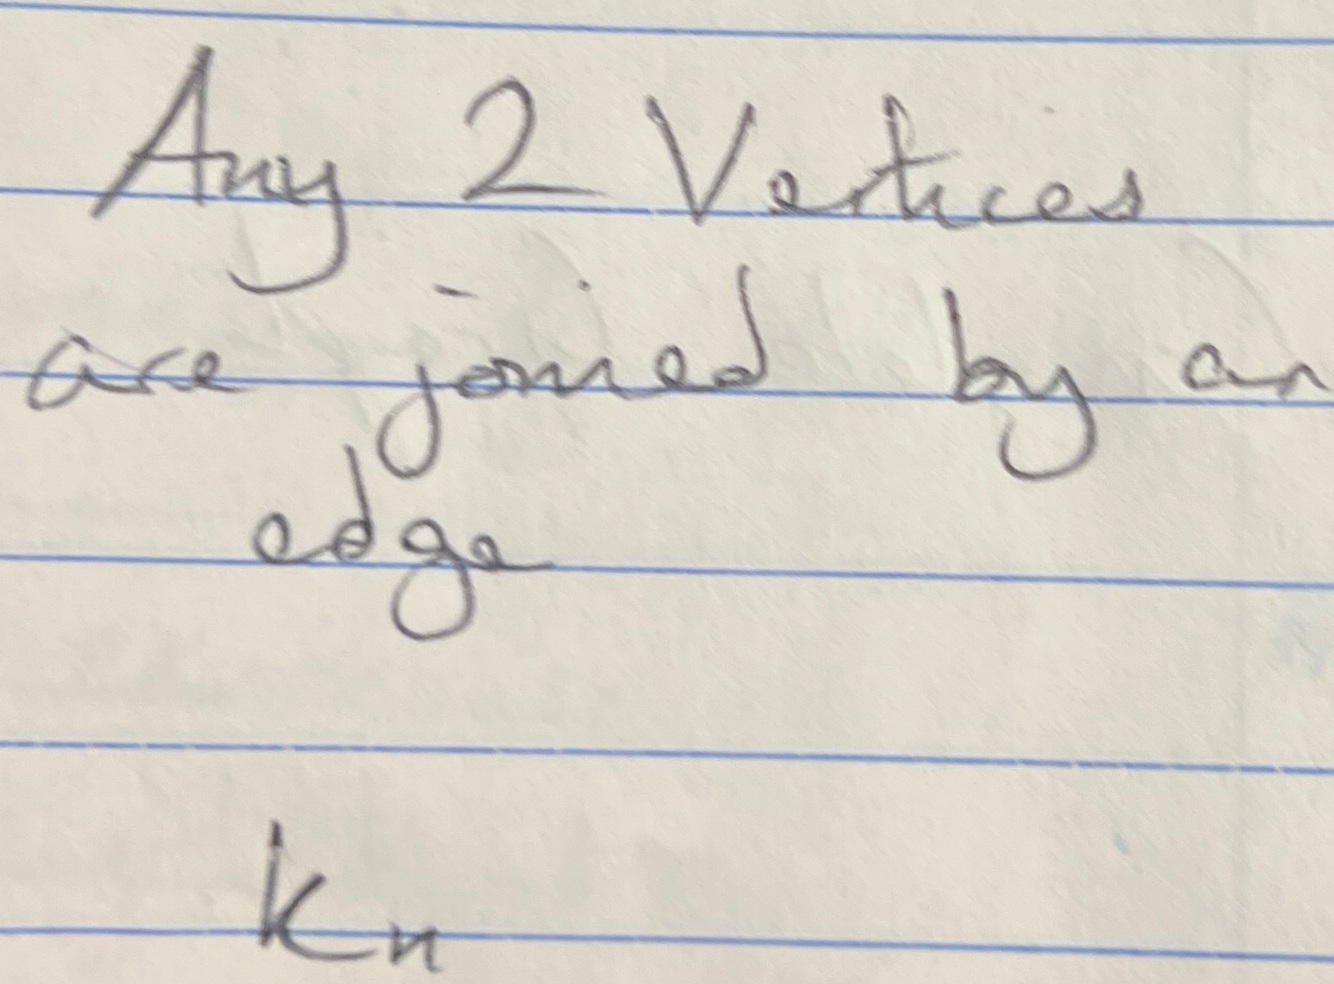 Any 2 Vertices
are joined by an
edge
Kn